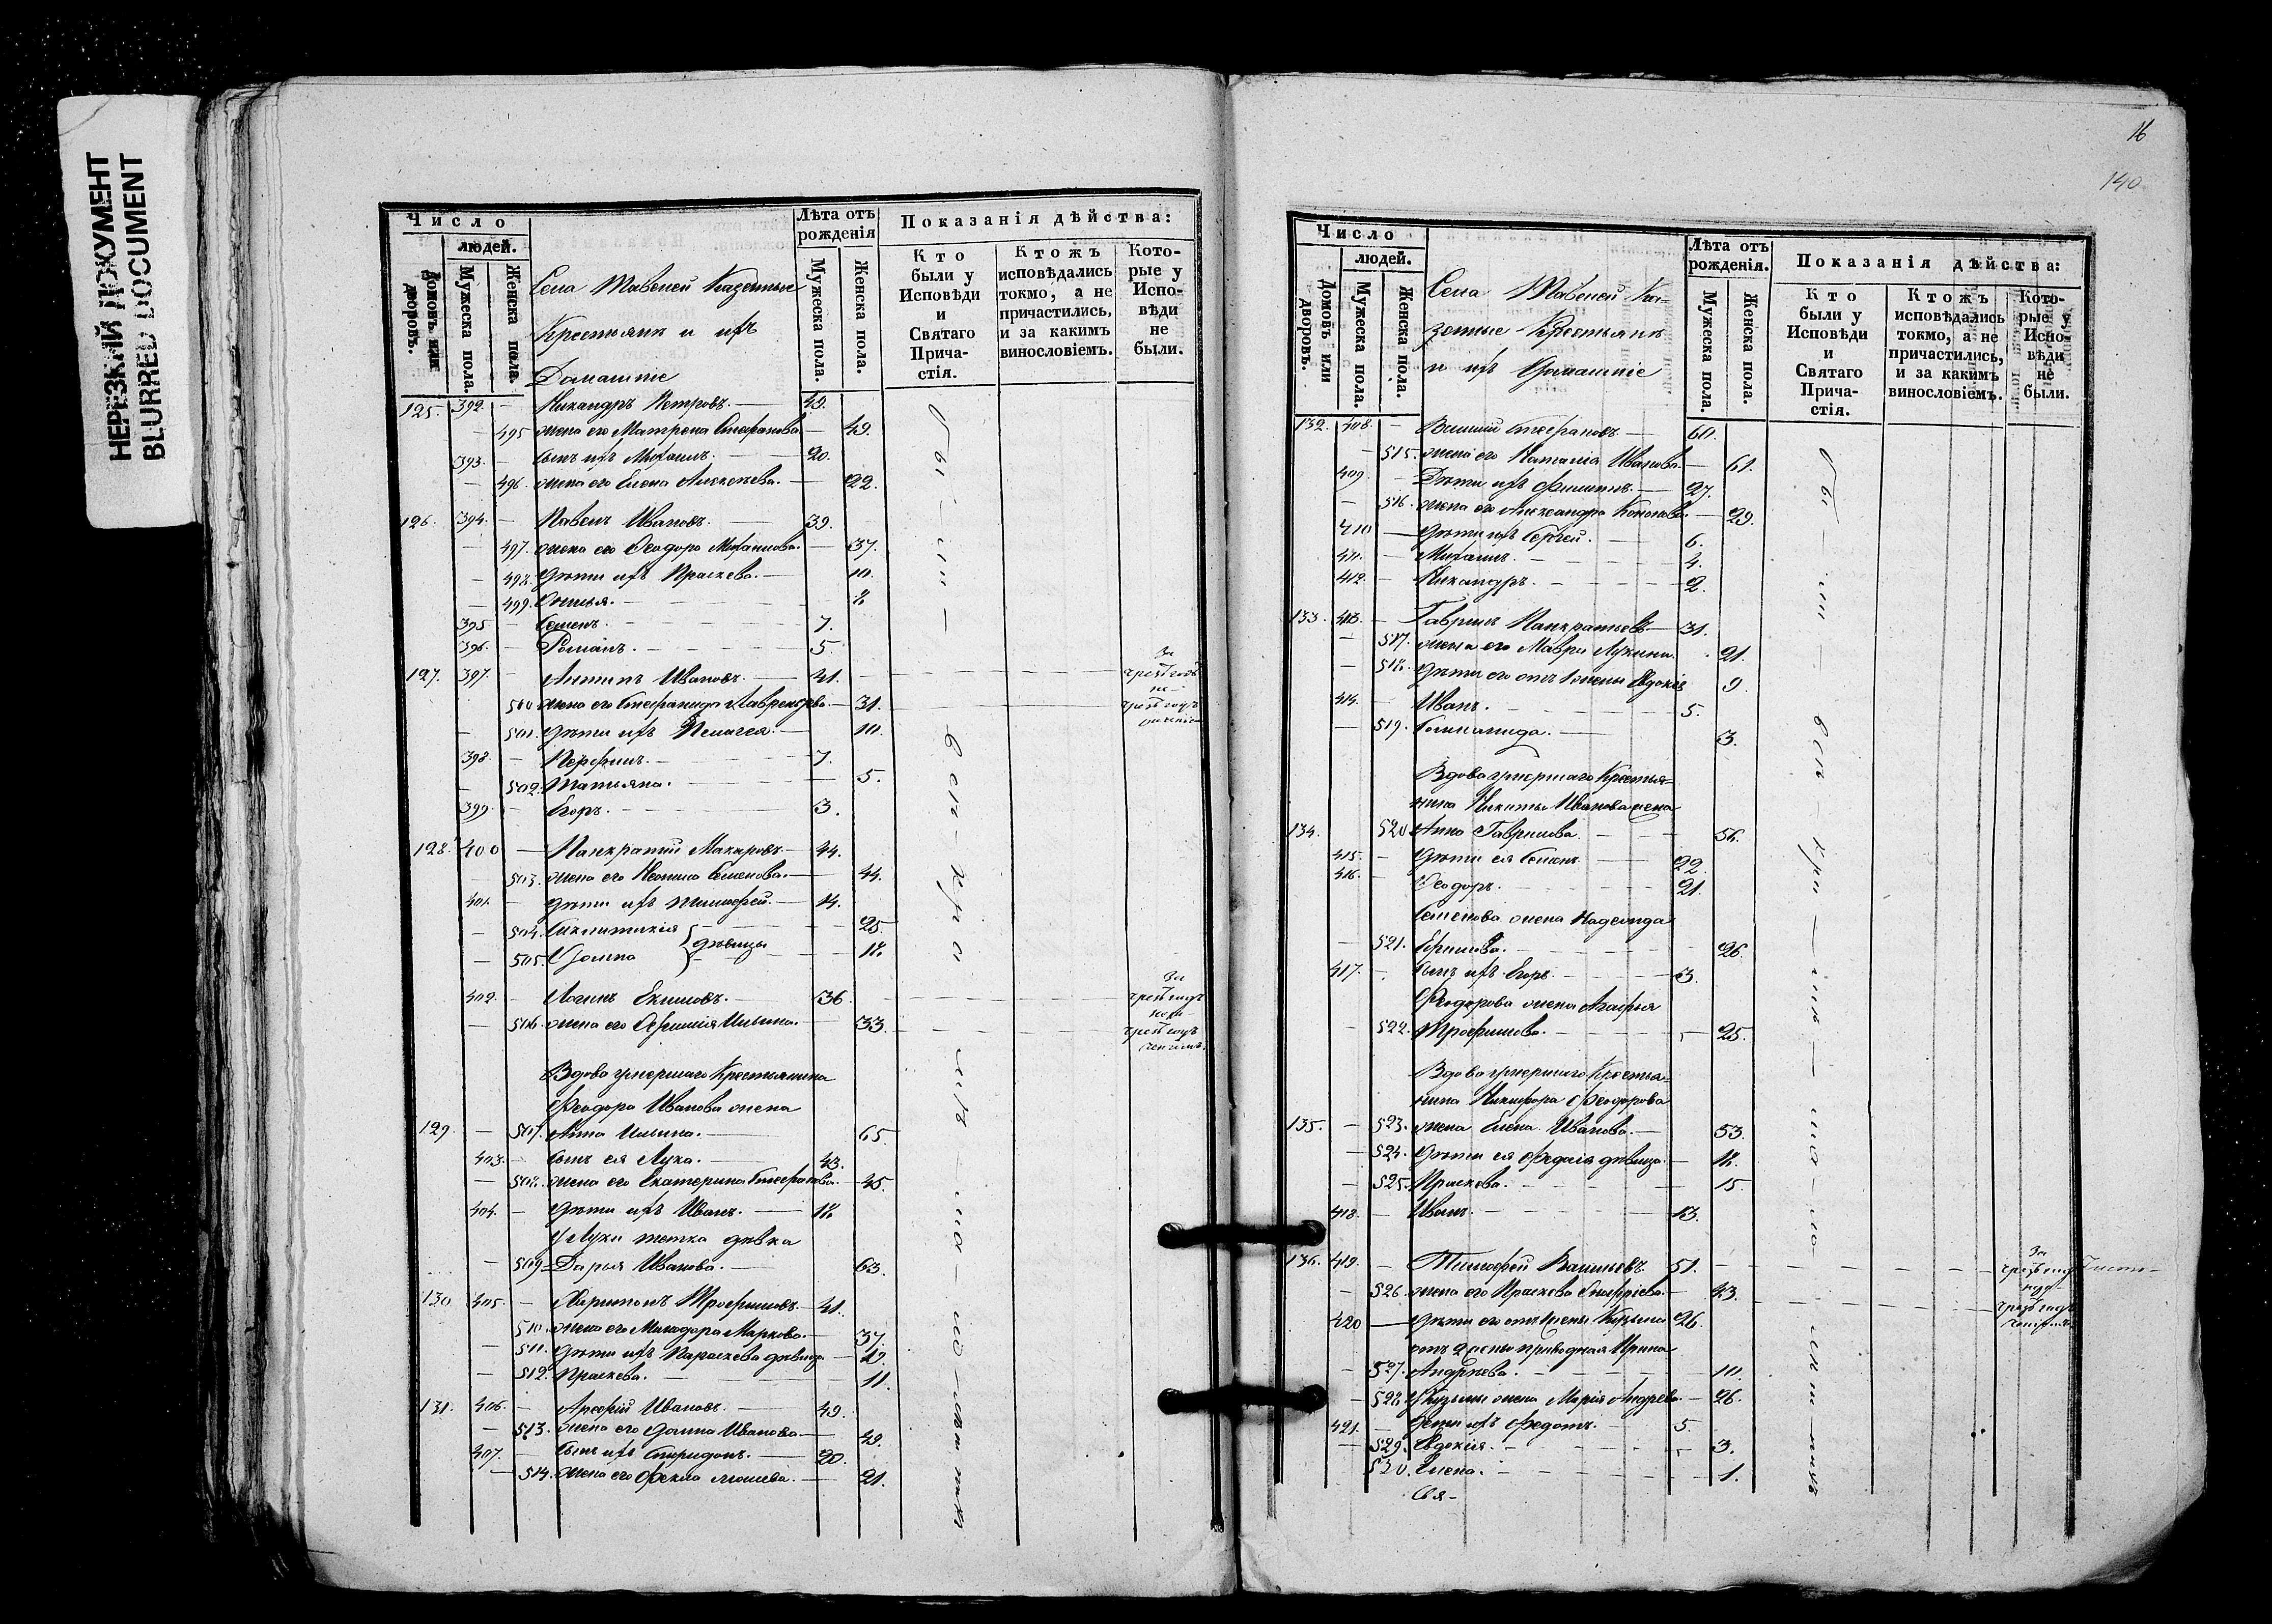 НЕРЕЗКИЙ ДОКУМЕНТ
BLURRED DOCUMENT
Число
людей.
Домовъ или дворовъ.
Мужеска пола.
Женска пола.
Села Казенные
Крестьяне и ихъ
Домашніе
Лѣта отъ рожденія
Мужеска пола.
Женска пола.
Показанія дѣйства:
Кто были у Исповѣди и Святаго Причастія.
Ктожъ исповѣдались токмо, а не причастились, и за какимъ винословіемъ.
Которые у Исповѣди не были.
125. 392. — Никандръ Петровъ. — 49.
— 495 жена его Матрена Стефанова — 49.
393. — сынъ ихъ Михаилъ. — 20.
— 496. жена его Елена Алексѣева. — 22.
126. 394. — Павелъ Ивановъ. — 39.
— 497. жена его Ѳеодора Михаилова. — 37.
— 498. дѣти ихъ Праскева. — 10.
— 499. — 8
395 — Семенъ. — 7.
396. — Романъ. — 5.
127. 397. — Антипъ Ивановъ. — 41.
500 жена его Стефанида Лаврентьева — 31.
— 501. дѣти ихъ Пелагея. — 10.
398. — Перфилъ. — 7.
— 502. Татьяна. — 5.
399 — Егоръ. — 3.
128. 400 — Панкратій Макаровъ. — 44.
— 503. жена его Неонила Семенова. — 44.
401. — дѣти ихъ Тимофей. — 14.
— 504. Синклитикія } дѣвицы — 25.
— 505. Домна — 18.
402. — Логинъ Екимовъ. — 36.
— 506. жена его Ефимія Ильина. — 33.
Вдова умершаго Крестьянина
Феодора Иванова жена
129. — 507. Анна Ильина. — 65.
403. — сынъ ея Лука. — 43.
— 508. жена его Екатерина Стефанова. — 45.
404. — дѣти ихъ Иванъ. — 18.
у Луки тетка дѣвка
— 509 Дарья Иванова. — 63.
130 405. — Харитонъ Трофимовъ. — 41.
510. жена его Минодора Маркова. — 37.
— 511. дѣти ихъ Параскева дѣвица — 19.
— 512. Праскева. — 11.
131. 406. — Арефій Ивановъ. — 49.
— 513. жена его Домна Иванова. — 49.
407. — сынъ ихъ Спиридонъ. — 20.
— 514. жена его Фекла — 21.
16
140
Число
людей.
Домовъ или дворовъ.
Мужеска пола.
Женска пола.
Села Ка-
зенные Крестьяне
и ихъ Домашніе
Лѣта отъ рожденія.
Мужеска пола.
Женска пола.
Показанія дѣйства:
Кто были у Исповѣди и Святаго Причастія.
Ктожъ исповѣдались токмо, а не причастились, и за какимъ винословіемъ.
Которые у Исповѣди не были.
132. 408. — Стефановъ — 60.
— 515. жена его Наталія Иванова. — 61.
409. — Дѣти ихъ Филиппъ. — 27.
— 516. жена его Александра Кононова. — 29.
410 — дѣти ихъ Сергей. — 6.
411. — Михаилъ. — 4.
412. — Никандръ. — 2.
133. 413. — Гаврилъ Панкратьевъ — 31.
— 517. жена его Мавра Лукина. 21.
— 518. дѣти его отъ 1 жены Евдокія 9.
414. — Иванъ. — 5.
— 519. 3.
Вдова умершаго Крестья-
нина Никиты Иванова жена
134. 520 Анна Гаврилова. — 56.
415. — дѣти ея Семенъ. — 22.
416. — Ѳеодоръ. — 21.
Семенова жена Надежда
— 521. Ефимова. — 26
417. — сынъ ихъ Егоръ. — 3.
Феодорова жена Агафья
— 522. Трофимова. — 25.
Вдова умершаго Крестья-
нина Никифора Феодорова
135. — 523. жена Елена Иванова. — 53.
— 524. дѣти ея дѣвица. — 18.
— 525. Праскева. — 15.
418. — Иванъ. — 13.
136. 419. — Тимофей Васильевъ 51.
— 526. жена его Праскева — 43.
420 — дѣти его отъ 1 жены Кузьма 26.
отъ 2 жены приводная Ирина
— 527. Андрѣева. — 10.
— 528. у Кузьмы жена Марія Андрѣева. — 26.
421. — Дети ихъ Федотъ. — 5.
— 529. Евдокія. — 3.
530. Елена. — 1.